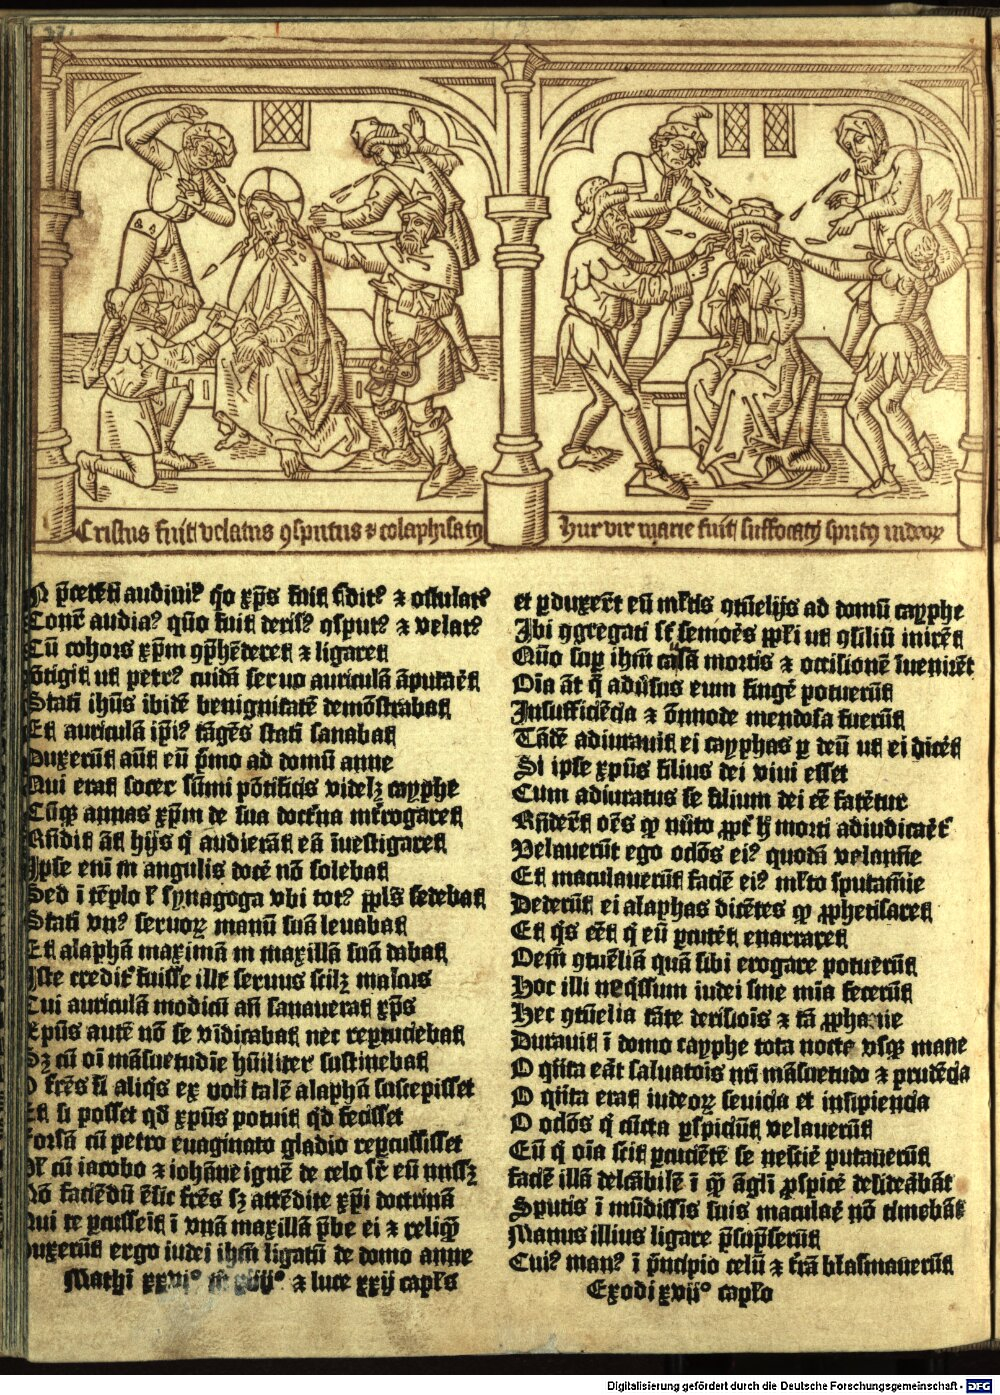 Cristus fuit velatus ꝯsputus ⁊ colaphisatꝰ
Hur vir marie fuit suffocatꝰ sputꝰ iudeoꝝ
N p̄cedēti audiuimꝰ qūo xp̄s fuit vēditꝰ ⁊ osculatꝰ
Conr̄ audiaꝰ quō fuit derisꝰ ꝯsputꝰ ⁊ velatꝰ
Cū cohors xp̄m ꝯp̄hēderet ⁊ ligaret
Stati ihūs ibidē benignitatē demōstrabat
Et auriculā ip̄iꝰ tāgēs stati sanabat
Duxerūt aūt eū p̄mo ad domū anne
Qui erat socer sūmi pōtificis videlꝫ cayphe
Cūqꝫ annas xp̄m de sua doctrīa īt̄rogaret
Rn̄dit āt hijs q̄ audierāt eā īuestigaret
Ipse enī in angulis docē nō solebat
Sed ī tēplo ł synagoga vbi totꝰ ppl̄s sedebat
Stati vnꝰ seruoꝝ manū suā leuabat
Et alaphā maximā in maxillā suā dabat
Iste creditr̄ fuisse ille seruus scilꝫ malcus
Cui auriculā modicū an̄ sanauerat xp̄s
Xp̄us autē nō se vīdicabat nec repcuciebat
Sꝫ cū oī māsuetudīe hūiliter sustinebat
O frēs si aliq̄s ex vob̄ talē alaphā suscepisset
Et si posset qd̄ xp̄us potuit qd̄ fecisset
Forsā cū petro euaginato gladio repcussisset
Vł cū iacobo ⁊ iohāne ignē de celo sr̄ eū misꝫ
Nō faciēdū ē sic frēs sꝫ attēdite xp̄i doctrinā
Qui te pcusseīt ī vnā maxillā p̄be ei ⁊ reliquā
Duxerūt ergo iudei ihm̄ ligatū de domo anne
⁊ luce xxij capł̄s
et pduxerūt eū ml̄tis ꝯtūelijs ad domū cayphe
Ibi ꝯgregati sūt semōes ppl̄i ut ꝯsiliū inirēt
Quō sup ihm̄ cāsā mortis ⁊ occisionē īuenirēt
Oīa āt q̄ adūsus eum fingē potuerūt
Insufficiēcia ⁊ ōnnode mendosa fuerūt
Tādē adiurauit ei cayphas p deū ut ei dicēt
Si ipse xp̄us filius dei viui esset
Cum adiuratus se filium dei eē fatētur
Rn̄derūt oēs qꝫ mīto ppt̄ h̄ morti adiudicaēt̄
Velauerūt ego oclōs eiꝰ quodā velamīe
Et maculauerūt faciē eiꝰ ml̄to sputamīe
Dederūt ei alaphas dicētes qꝫ pphetisaret
Et q̄s eēt q̄ eū pcutēt enarraret
Oem̄ ꝯtuēliā quā sibi erogare potuerūt
Hoc illi neq̄ssimi iudei sine mīa fecerūt
Hec ꝯtūelia tāte derisiois ⁊ tā pphane
Durauit ī domo cayphe tota nocte vsqꝫ mane
O q̄ta eāt saluatois nr̄i māsuetudo ⁊ prudēcia
O q̄ta erat iudeoꝝ seuicia et insipiencia
O oclōs q̄ cūcta pspiciūt velauerūt
Eū q̄ oīa scit pcuciētē se nesciē putauerūt
faciē illā delcābilē ī quā āgli pspicē desideābāt
Sputis ī mūdissis suis maculaē nō timebāt
Manus illius ligare p̄sūpserūt
Cuiꝰ manꝰ ī p̄ncipio celū ⁊ t̄rā blasmauerūt
Exodi xvijº caplo
Digitalisierung gefördert durch die Deutsche Forschungsgemeinschaft - DFG